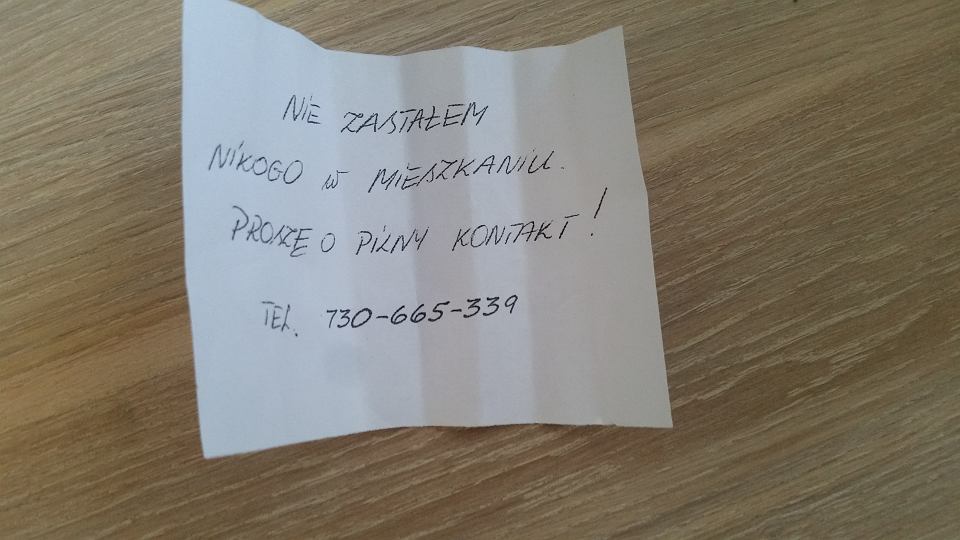 NIE ZASTAŁEM
NIKOGO W MIESZKANIU.
PROSZĘ O PILNY KONTAKT!
TEL. 730-665-339